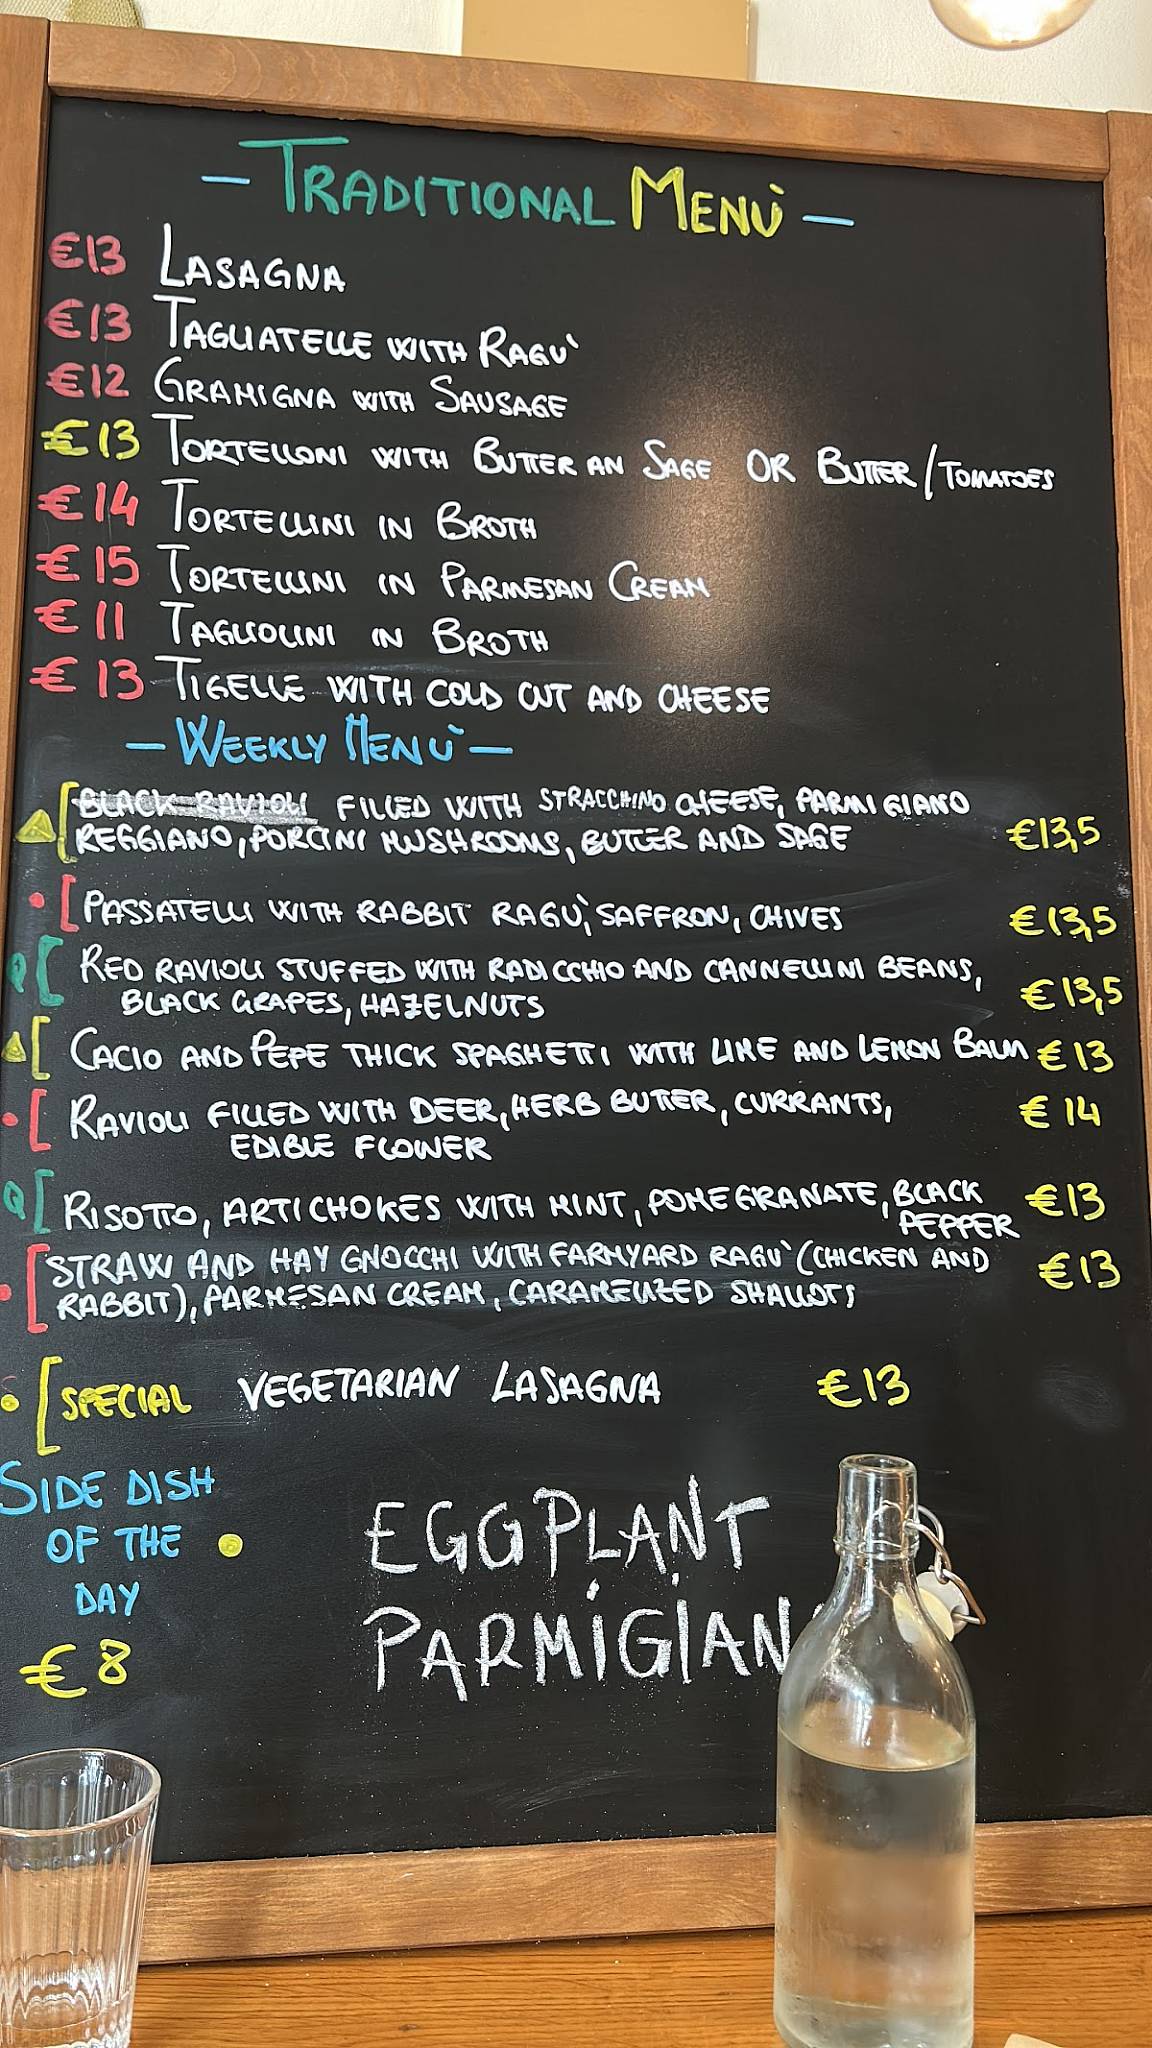 - TRADITIONAL MENÙ -
€13 LASAGNA
€13 TAGLIATELLE WITH RAGU'
€12 GRAMIGNA WITH SAUSAGE
€13 TORTELLONI WITH BUTTER AN SAGE OR BUTTER/TOMATOES
€14 TORTELLINI IN BROTH
€15 TORTELLINI IN PARMESAN CREAM
€11 TAGLIOLINI IN BROTH
€13 TIGELLE WITH COLD CUT AND CHEESE
- WEEKLY MENÙ -
BLACK RAVIOLI FILLED WITH STRACCHINO CHEESE, PARMIGIANO
REGGIANO, PORCINI MUSHROOMS, BUTTER AND SAGE €13,5
PASSATELLI WITH RABBIT RAGU', SAFFRON, CHIVES €13,5
RED RAVIOLI STUFFED WITH RADICCHIO AND CANNELLINI BEANS,
BLACK GRAPES, HAZELNUTS €13,5
CACIO AND PEPE THICK SPAGHETTI WITH LIME AND LEMON BALM €13
RAVIOLI FILLED WITH DEER, HERB BUTTER, CURRANTS, €14
EDIBLE FLOWER
RISOTTO, ARTICHOKES WITH MINT, POMEGRANATE, BLACK €13
PEPPER
STRAW AND HAY GNOCCHI WITH FARMYARD RAGU' (CHICKEN AND €13
RABBIT), PARMESAN CREAM, CARAMELIZED SHALLOTS
SPECIAL VEGETARIAN LASAGNA €13
SIDE DISH
OF THE
DAY
€8
EGGPLANT
PARMIGIAN